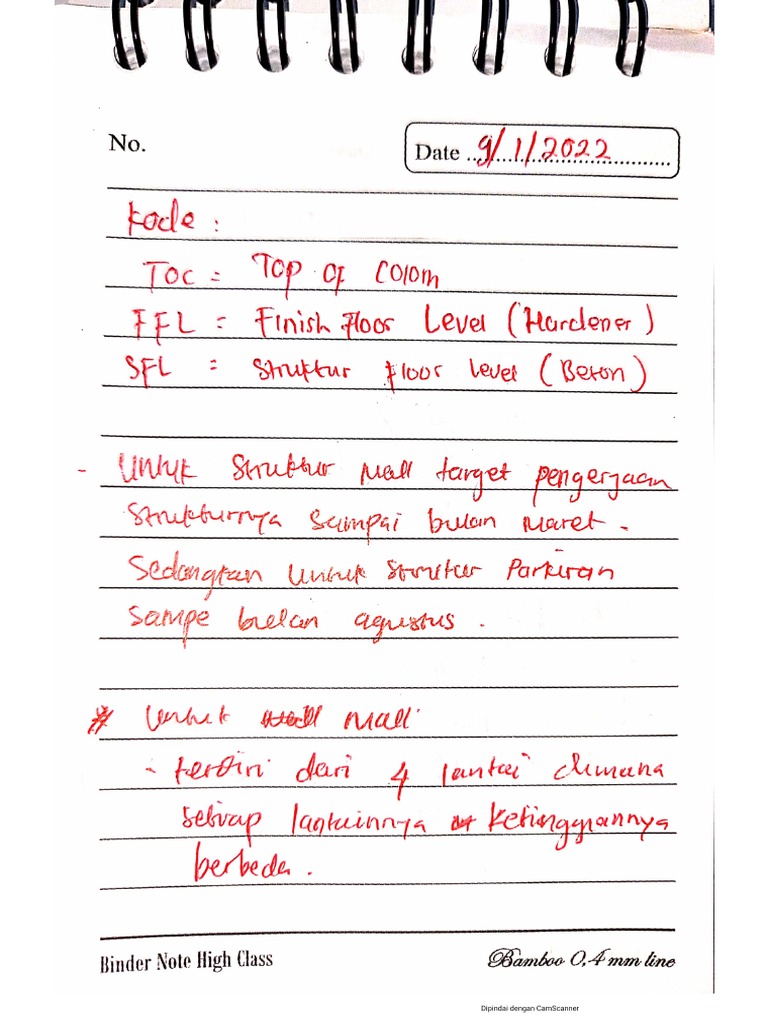 No.
Date 9/1/2022
Kode :
TOC = Top of Colom
FFL = Finish Floor Level (Hardener)
SFL = Struktur Floor Level (Beton)
- Untuk Struktur Mall target pengerjaan
Strukturnya Sampai bulan Maret.
Sedangkan Untuk Struktur Parkiran
Sampe bulan agustus.
* Untuk Mall
- terdiri dari 4 lantai dimana
setiap lantainnya ketinggiannya
berbeda.
Binder Note High Class
Bamboo 0,4 mm line
Dipindai dengan CamScanner